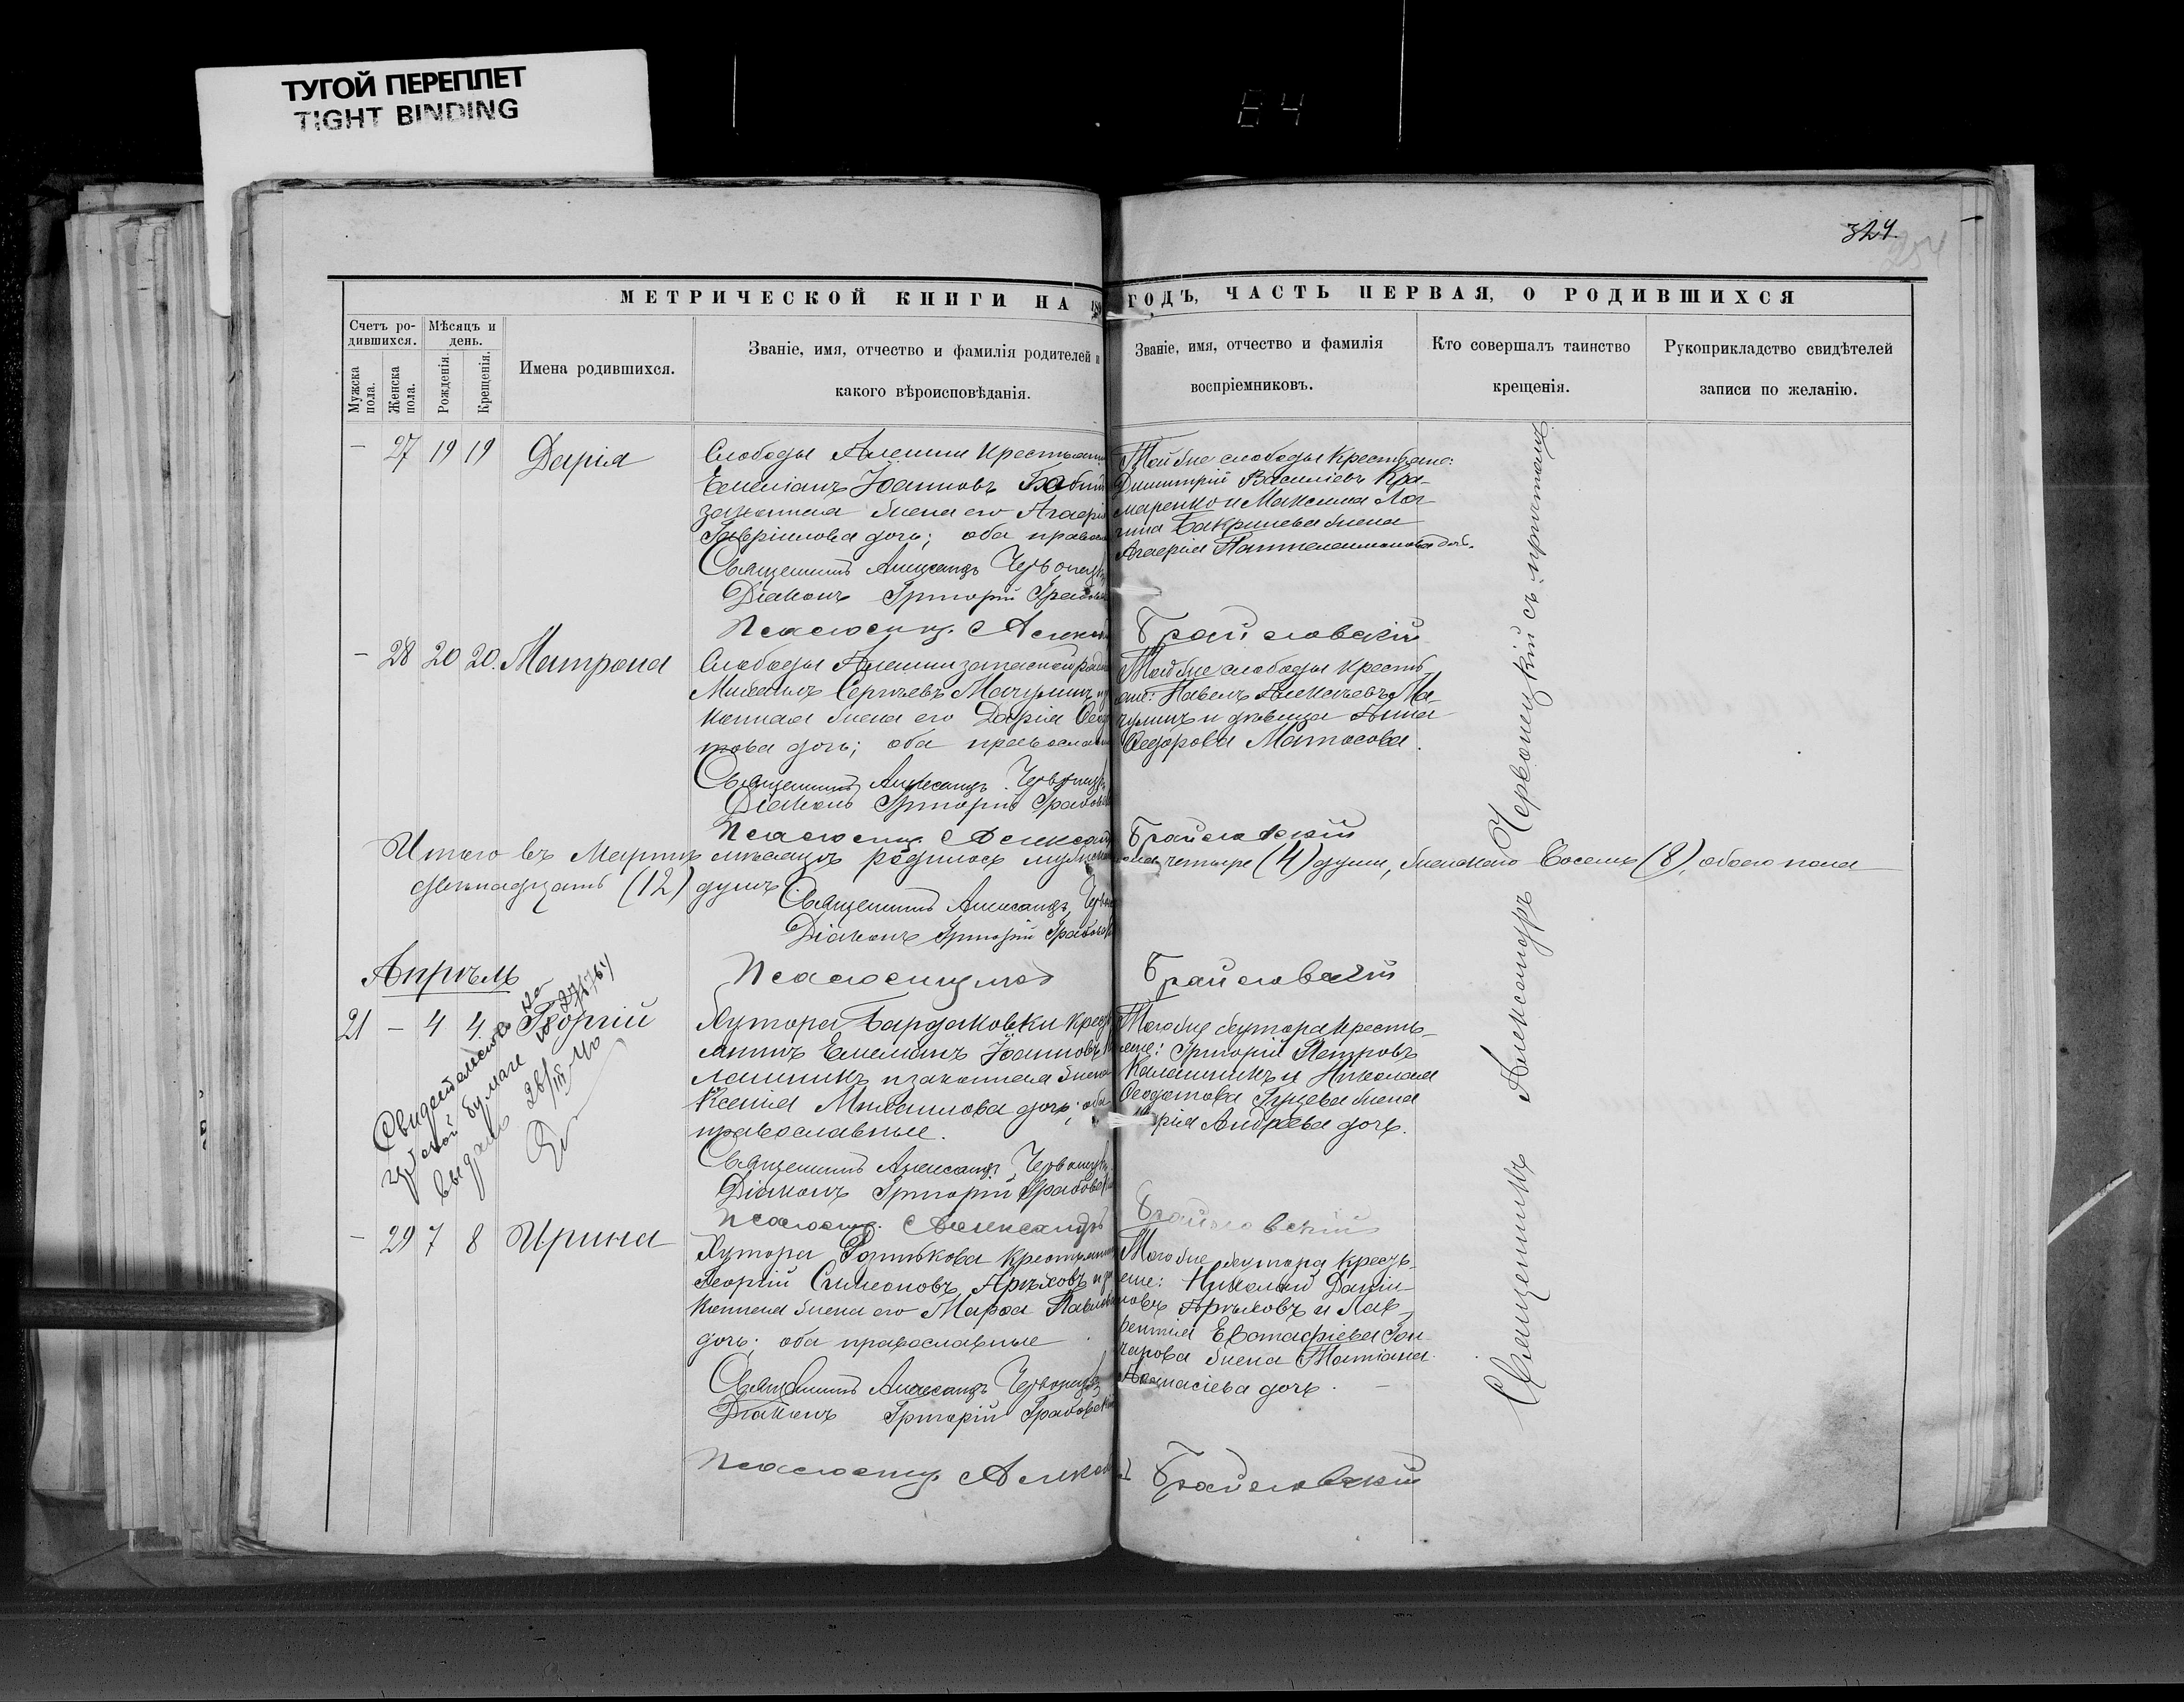 ТУГОЙ ПЕРЕПЛЕТ
TIGHT BINDING
84
324
МЕТРИЧЕСКОЙ КНИГИ НА 18
ГОДЪ, ЧАСТЬ ПЕРВАЯ, О РОДИВШИХСЯ
Счетъ ро-
дившихся.
Мѣсяцъ и
день.
Мужска
пола.
Женска
пола.
Рожденія.
Крещенія.
Имена родившихся.
Званіе, имя, отчество и фамилія родителей и
какого вѣроисповѣданія.
Званіе, имя, отчество и фамилія
воспріемниковъ.
Кто совершалъ таинство
крещенія.
Рукоприкладство свидѣтелей
записи по желанію.
— 27 19 19 Дарія
Слободы Алешни крестьянин
Емеліанъ Іоанновъ Бабин
законная жена его Агаѳія
Гавріилова дочь; оба правосл
Священникъ Александръ Червонецк
Діаконъ Григорій Грабовск
Псаломщ. Алекса
Той же слободы крестьяне:
Димитрій Василіевъ Кра-
маренко и Максима Лог-
гина жена
Агаѳія Пантелеимонова доч.
Брайловскій
— 28 20 20. Матрона
Слободы Алешни запасной рядов
Михаилъ Сергѣевъ Мачулинъ и за
конная жена его Дарія Ѳедо
това дочь; оба православн
Священникъ Александръ Червонецк
Діаконъ Григорій Грабовск
Псаломщ. Александ
Той же слободы кресть
яне: Павелъ Алексѣевъ Ма-
чулинъ и дѣвица Анна
Ѳедорова Матосова.
Брайловскій
Итого въ Мартѣ мѣсяцѣ родилось мужска
пола четыре (4) души, женскаго восемь (8), обоего пола
двѣнадцать (12) душъ.
Священникъ Александръ Черво
Діаконъ Григорій Грабовск
Псаломщикъ
Брайловскій
Апрѣль
21 — 4 4 Георгій
Свидетельство на
выдано 26/III
Хутора Бардаковки крест
янинъ Емеліанъ Іоанновъ Ка
лашникъ и законная жена
Ксенія Михаилова дочь; оба
православные.
Священникъ Александръ Червонецк
Діаконъ Григорій Грабовск
Псаломщ. Александръ
Того же хутора кресть-
яне: Григорій Петровъ
Калашникъ и Николая
Ѳеодотова жена
Марія Андреева дочь.
Брайловскій
— 29 7 8 Ирина
Хутора крестьянин
Георгій Симеоновъ Арѣховъ и за
конная жена его Марѳа Павлова
дочь; оба православные
Священникъ Александръ Червонецк
Діаконъ Григорій Грабовскі
Псаломщ. Алекса
Того же хутора кресть-
яне: Николай Даніи-
ловъ Арѣховъ и Лав-
рентія Евстафіева Гон-
чарова жена Татіана
Аѳанасіева дочь.
Брайловскій
Священникъ Александръ Червонецкій съ причтомъ